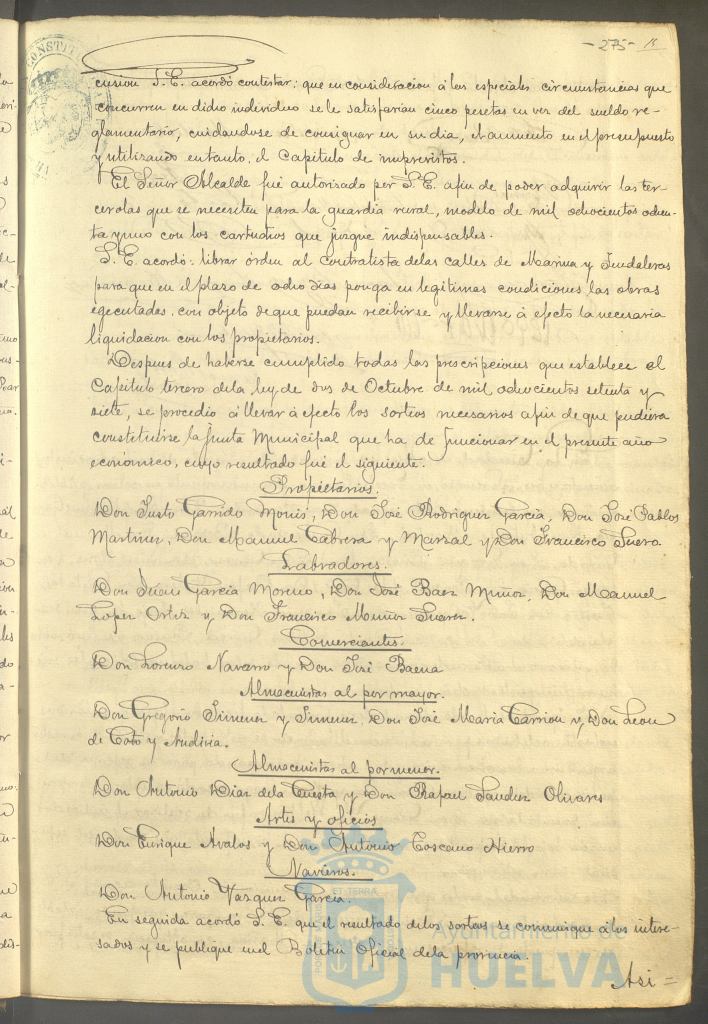 - 275 -
cusion S. E. acordó contestar: que en consideracion á las especiales circunstancias que
concurren en dicho individuo se le satisfarian cinco pesetas en vez del sueldo re-
glamentario, cuidandose de consignar en su dia, el aumento en el presupuesto
y utilizando entanto, el Capitulo de imprevistos.
El Señor Alcalde fué autorizado por S. E. afin de poder adquirir las ter-
cerolas que se necesiten para la guardia rural, modelo de mil ochocientos ochen-
ta y uno con los cartuchos que juzgue indispensables.
S. E. acordó: librar órden al contratista delas calles de Marina y Tendaleras
para que en el plazo de ocho dias ponga en legitimas condiciones las obras
egecutadas, con objeto de que puedan recibirse y llevarse á efecto la necesaria
liquidacion con los propietarios.
Despues de haberse cumplido todas las prescripciones que establece el
Capitulo tercero dela ley de dos de Octubre de mil ochocientos setenta y
siete, se procedio á llevar á efecto los sorteos necesarios afin de que pudiera
constituirse la Junta Municipal que ha de funcionar en el presente año
económico, cuyo resultado fué el siguiente.
Propietarios.
Don Justo Garrido Monis, Don José Rodriguez Garcia, Don José Pablos
Martinez, Don Manuel Cabrera y Marzal y Don Francisco Suero.
Labradores.
Don Juan Garcia Moreno, Don José Baez Muñoz, Don Manuel
Lopez Ortiz y Don Francisco Muñoz Suarez.
Comerciantes.
Don Lorenzo Navarro y Don José Baena
Almacenistas al por mayor.
Don Gregorio Jimenez y Jimenez, Don José Maria Carrion y Don Leon
de Coto y Andivia.
Almacenistas al por menor.
Don Antonio Diaz dela Cuesta y Don Rafael Sanchez Olivares
Artes y oficios
Don Enrique Avalos y Don Antonio Toscano Hierro
Navieros.
Don Antonio Vazquez Garcia.
En seguida acordó S. E. que el resultado delos sorteos se comunique á los intere-
sados y se publique enel Boletin Oficial dela provincia.
Asi =
Ayuntamiento de
HUELVA